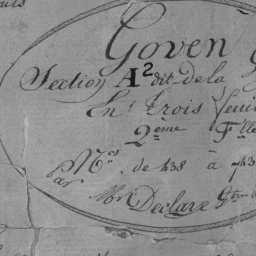 Goven
Section A² dit de la
En trois feuil
2ème F.lle
Nos. de 438 à 743
par
Mr. Declare